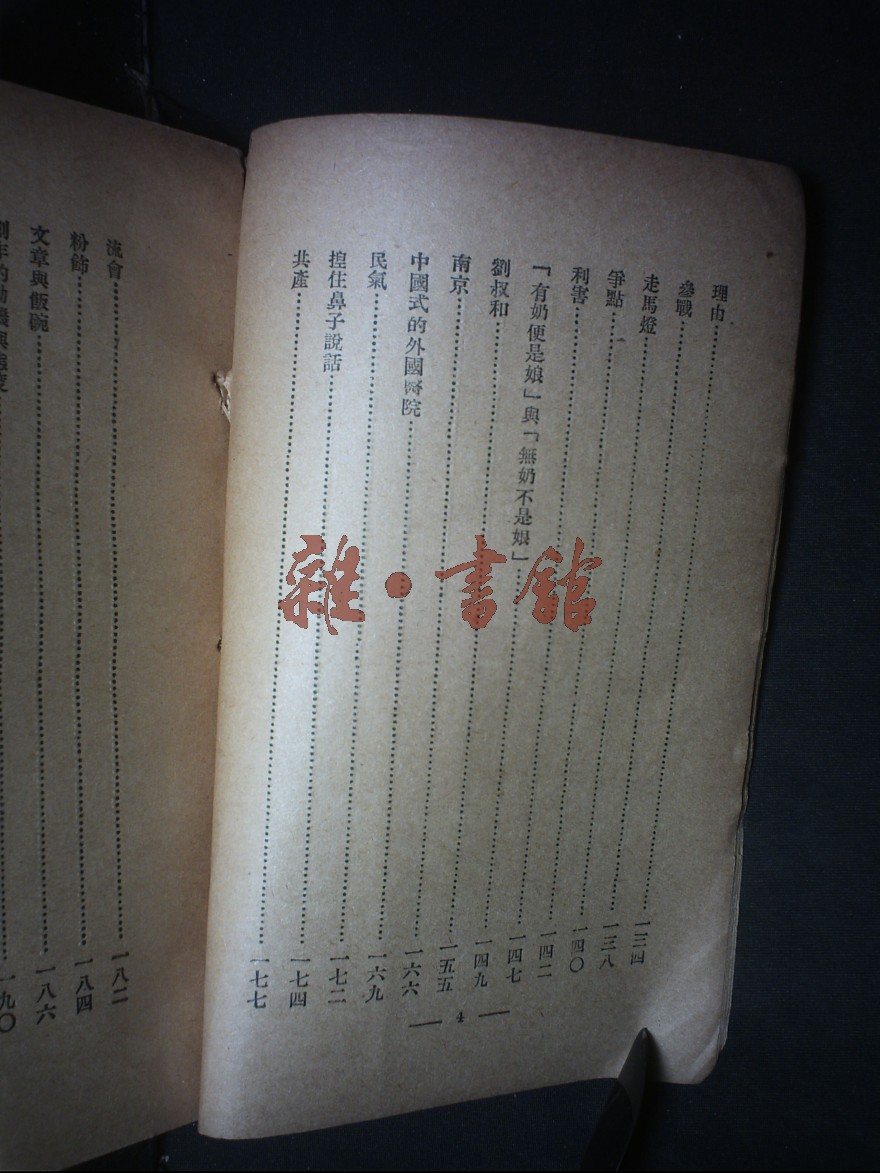 理由……一三四
參戰……一三八
走馬燈……一四〇
爭點……一四二
利害……一四七
「有奶便是娘」與「無奶不是娘」……一四九
劉叔和……一五五
南京……一六六
中國式的外國醫院……一六九
民氣……一七二
揑住鼻子說話……一七四
共產……一七七
— 4 —
流會……一八二
粉飾……一八四
文章與飯碗……一八六
的動機與態度……一九〇
雜·書館